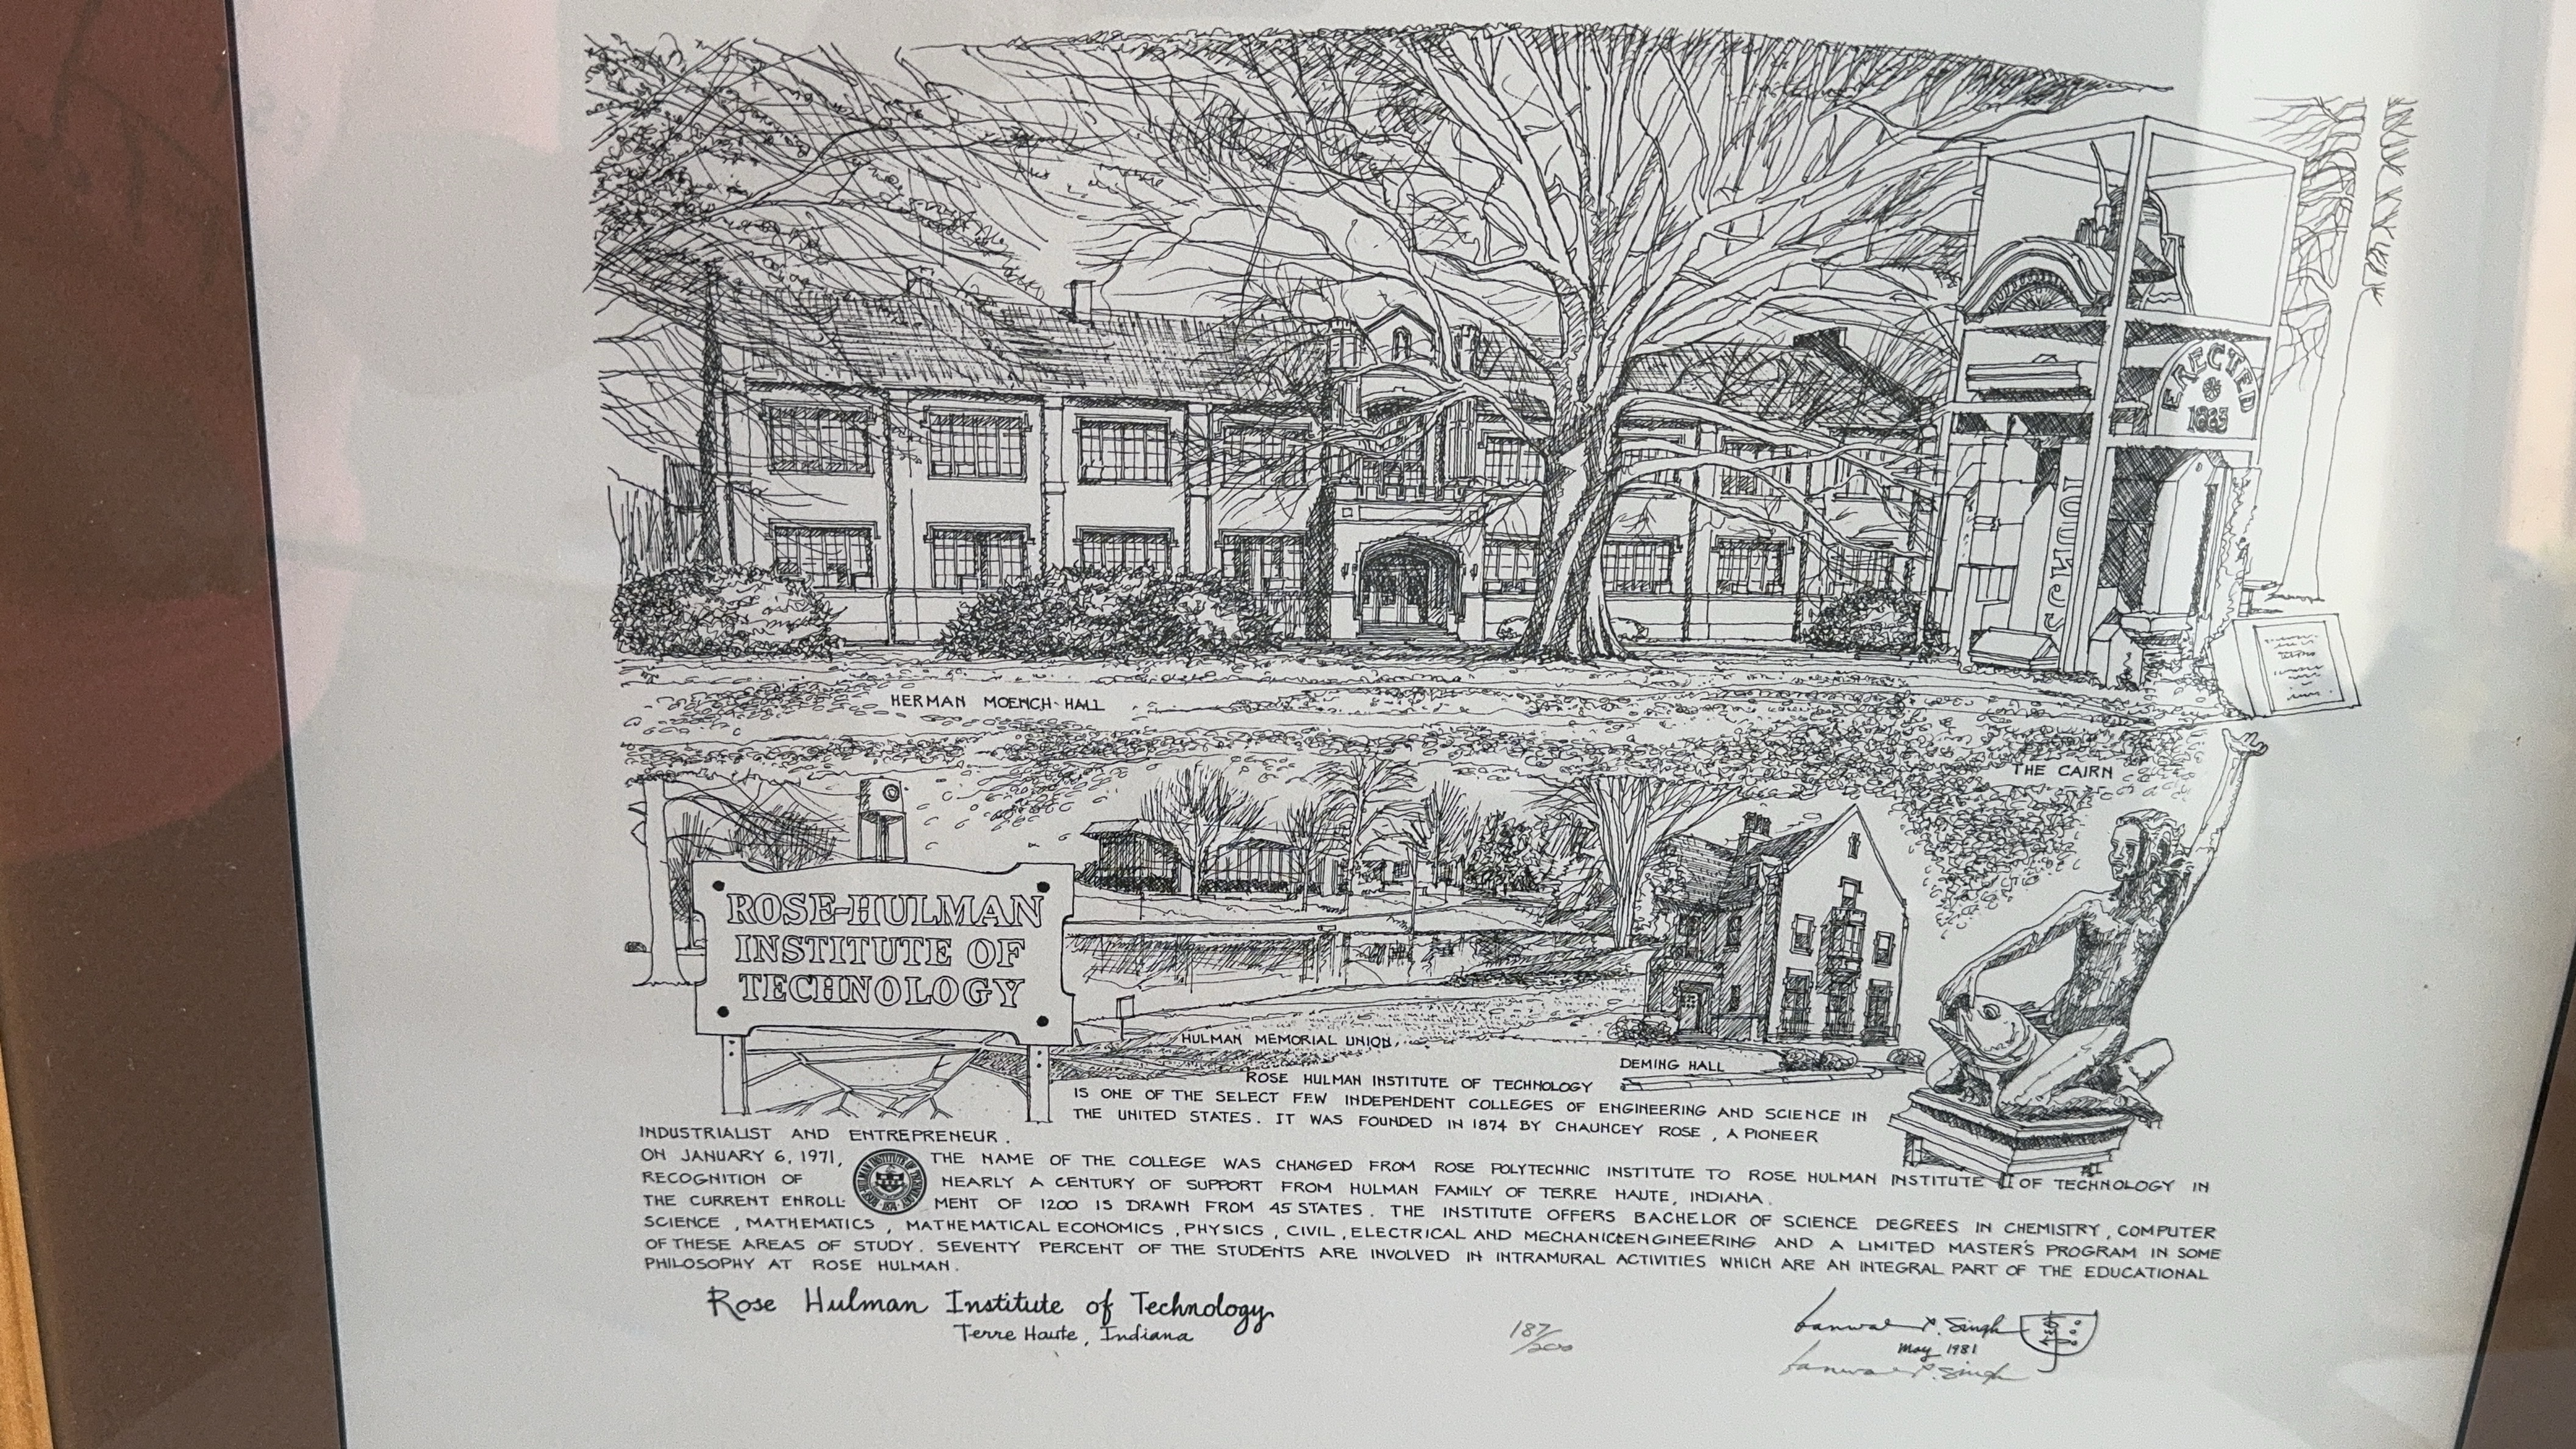 ERECTED
1885
HERMAN MOENCH HALL
THE CAIRN
ROSE-HULMAN
INSTITUTE OF
TECHNOLOGY
HULMAN MEMORIAL UNION
DEMING HALL
ROSE HULMAN INSTITUTE OF TECHNOLOGY
IS ONE OF THE SELECT FEW INDEPENDENT COLLEGES OF ENGINEERING AND SCIENCE IN
THE UNITED STATES. IT WAS FOUNDED IN 1874 BY CHAUNCEY ROSE, A PIONEER
INDUSTRIALIST AND ENTREPRENEUR.
ON JANUARY 6, 1971, THE NAME OF THE COLLEGE WAS CHANGED FROM ROSE POLYTECHNIC INSTITUTE TO ROSE HULMAN INSTITUTE OF TECHNOLOGY IN
RECOGNITION OF NEARLY A CENTURY OF SUPPORT FROM HULMAN FAMILY OF TERRE HAUTE, INDIANA.
THE CURRENT ENROLL- MENT OF 1200 IS DRAWN FROM 45 STATES. THE INSTITUTE OFFERS BACHELOR OF SCIENCE DEGREES IN CHEMISTRY, COMPUTER
SCIENCE, MATHEMATICS, MATHEMATICAL ECONOMICS, PHYSICS, CIVIL, ELECTRICAL AND MECHANICAL ENGINEERING AND A LIMITED MASTER'S PROGRAM IN SOME
OF THESE AREAS OF STUDY. SEVENTY PERCENT OF THE STUDENTS ARE INVOLVED IN INTRAMURAL ACTIVITIES WHICH ARE AN INTEGRAL PART OF THE EDUCATIONAL
PHILOSOPHY AT ROSE HULMAN.
Rose Hulman Institute of Technology
Terre Haute, Indiana
187/200
P. Singh
May 1981
P. Singh